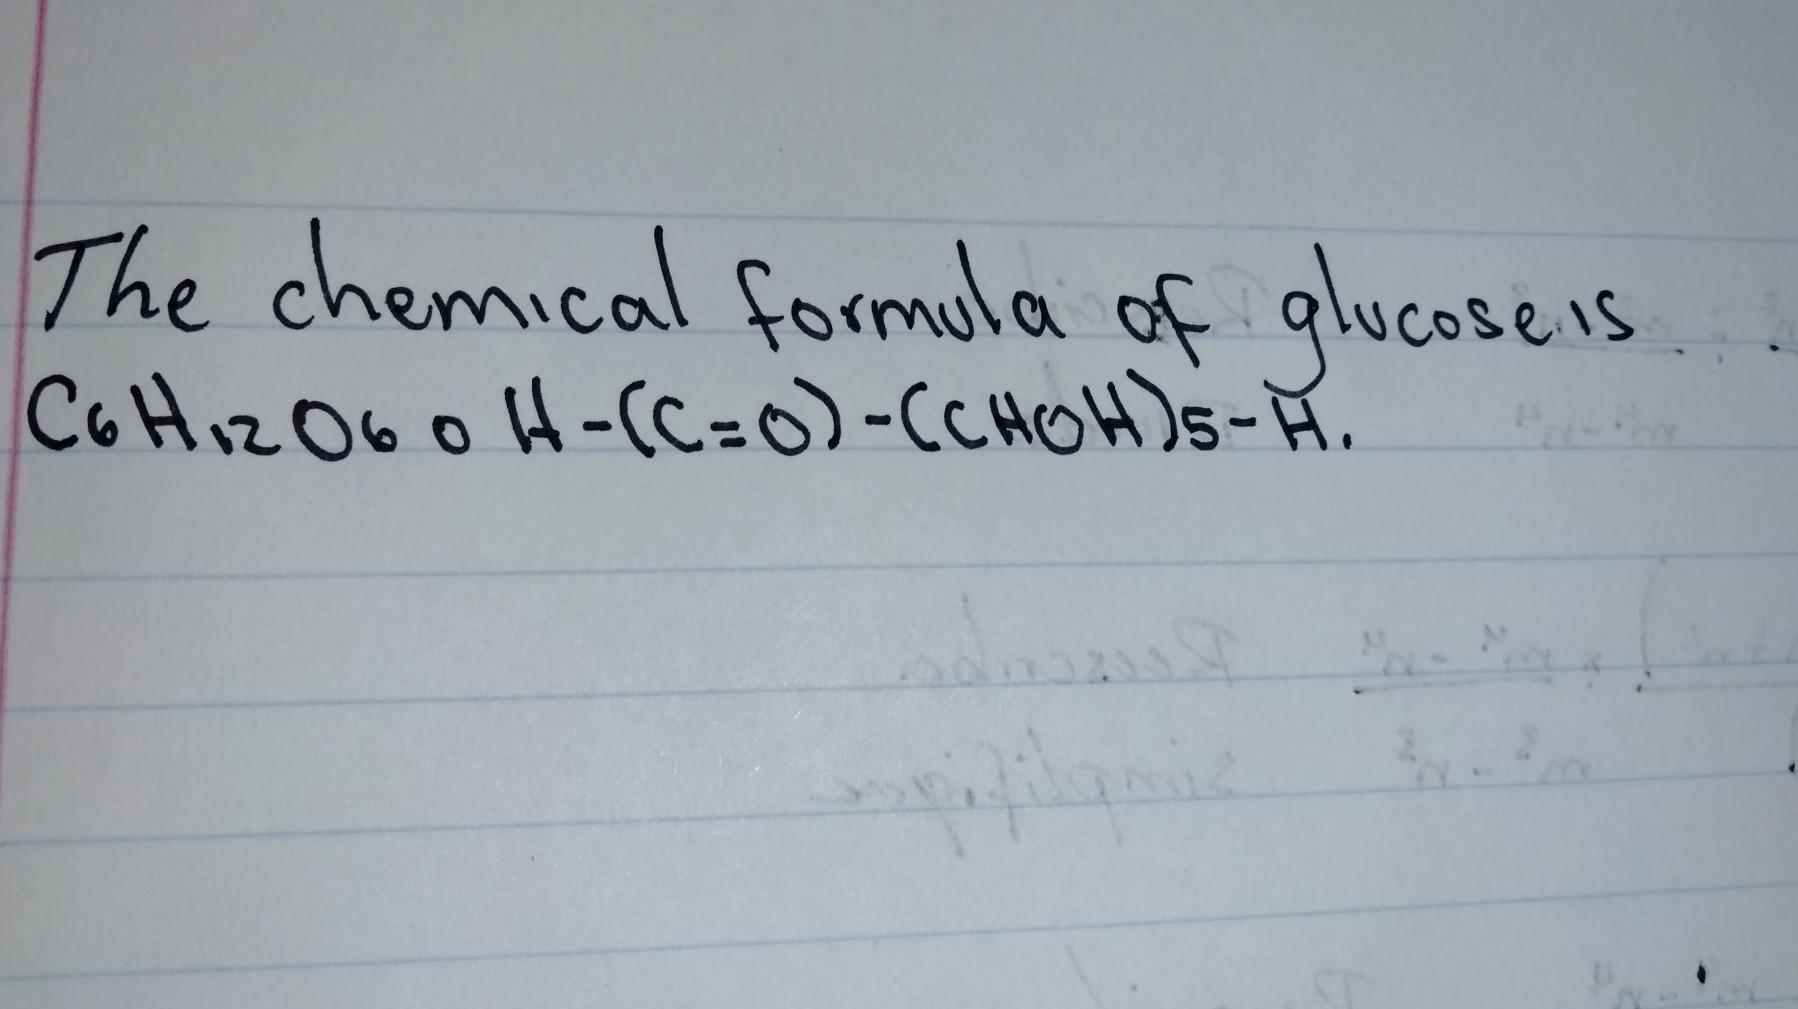 The chemical formula of glucose is
C6H12O6 o H-(C=O)-(CHOH)5-H.